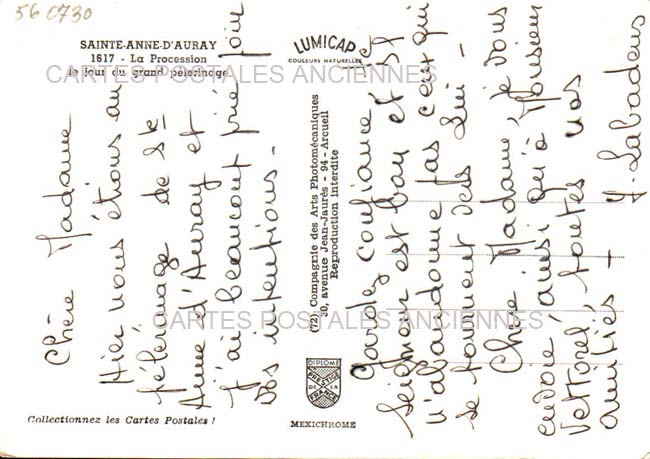 56 0730
SAINTE-ANNE-D'AURAY
1617 - La Procession
le jour du grand pèlerinage
LUMICAP
COULEURS NATURELLES
CARTES POSTALES ANCIENNES
Chère Madame
Hier nous étions au
pélérinage de Ste
Anne d'Auray et
J'ai beaucoup prié pour
vos intentions -
(72) Compagnie des Arts Photomécaniques
20, avenue Jean-Jaurès - 94 - Arcueil
Reproduction interdite
Gardez confiance le
Seigneur est bon et Il
n'abandonne pas ceux qui
se tournent vers Lui -
Chère Madame, je vous
envoie, ainsi qu'à Monsieur
Vettorel, toutes mes
amitiés -
Y. Labadens
CARTES POSTALES ANCIENNES
DIPLOME
PRESTIGE
DE LA
FRANCE
MEXICHROME
Collectionnez les Cartes Postales !